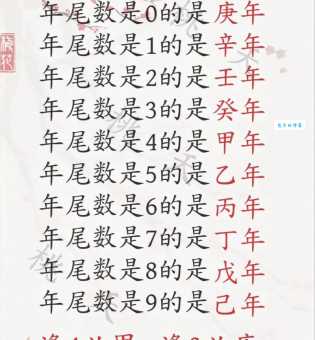 年尾数是0的是庚年
年尾数是1的是辛年
年尾数是2的是壬年
年尾数是3的是癸年
年尾数是4的是甲年
年尾数是5的是乙年
年尾数是6的是丙年
年尾数是7的是丁年
年尾数是8的是戊年
年尾数是9的是己年